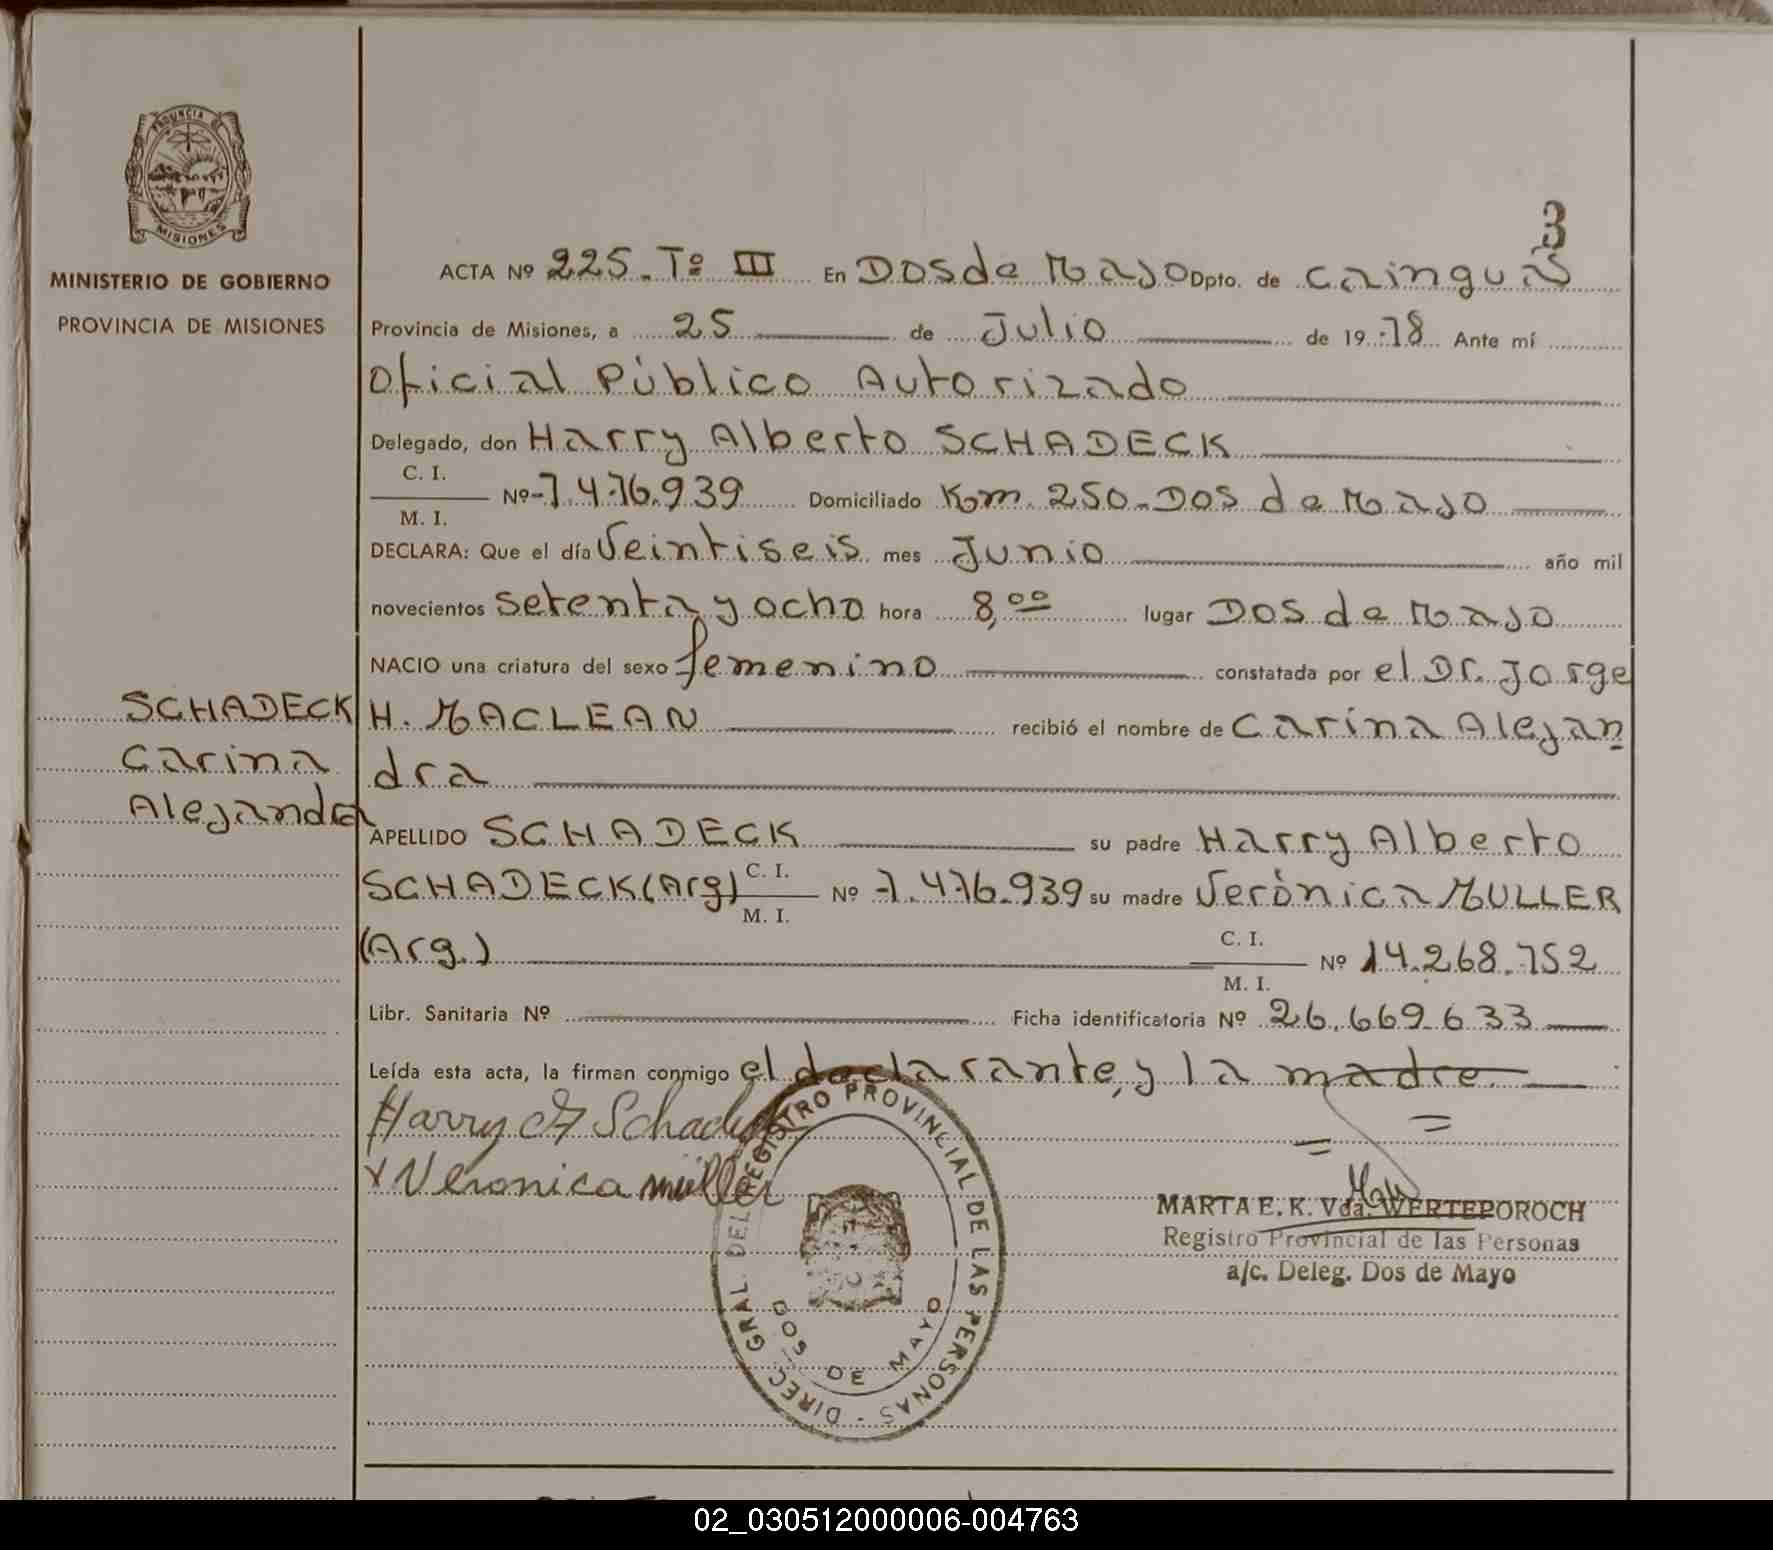 PROVINCIA DE
MISIONES
MINISTERIO DE GOBIERNO
PROVINCIA DE MISIONES
3
ACTA Nº 225. Tº III En Dos de Mayo Dpto. de Cainguás
Provincia de Misiones, a 25 de Julio de 19 78 Ante mí
Oficial Público Autorizado
Delegado, don Harry Alberto SCHADECK
C. I.
M. I. Nº 7.476.939 Domiciliado Km. 250-Dos de Mayo
DECLARA: Que el día Veintiseis mes Junio año mil
novecientos setenta y ocho hora 8,00 lugar Dos de Mayo
NACIO una criatura del sexo femenino constatada por el Dr. Jorge
H. MACLEAN recibió el nombre de Carina Alejan
dra
SCHADECK
Carina
Alejandra
APELLIDO SCHADECK su padre Harry Alberto
SCHADECK (Arg) C. I.
M. I. Nº 7.476.939 su madre Verónica MULLER
(Arg.) C. I.
M. I. Nº 14.268.752
Libr. Sanitaria Nº Ficha identificatoria Nº 26.669.633
Leída esta acta, la firman conmigo el declarante, y la madre.
Harry A Schadeck
x Veronica müller
DIREC. GRAL. DEL REGISTRO PROVINCIAL DE LAS PERSONAS -
DOS DE MAYO
MARTA E. K. Vda. WERTEPOROCH
Registro Provincial de las Personas
a/c. Deleg. Dos de Mayo
02_030512000006-004763